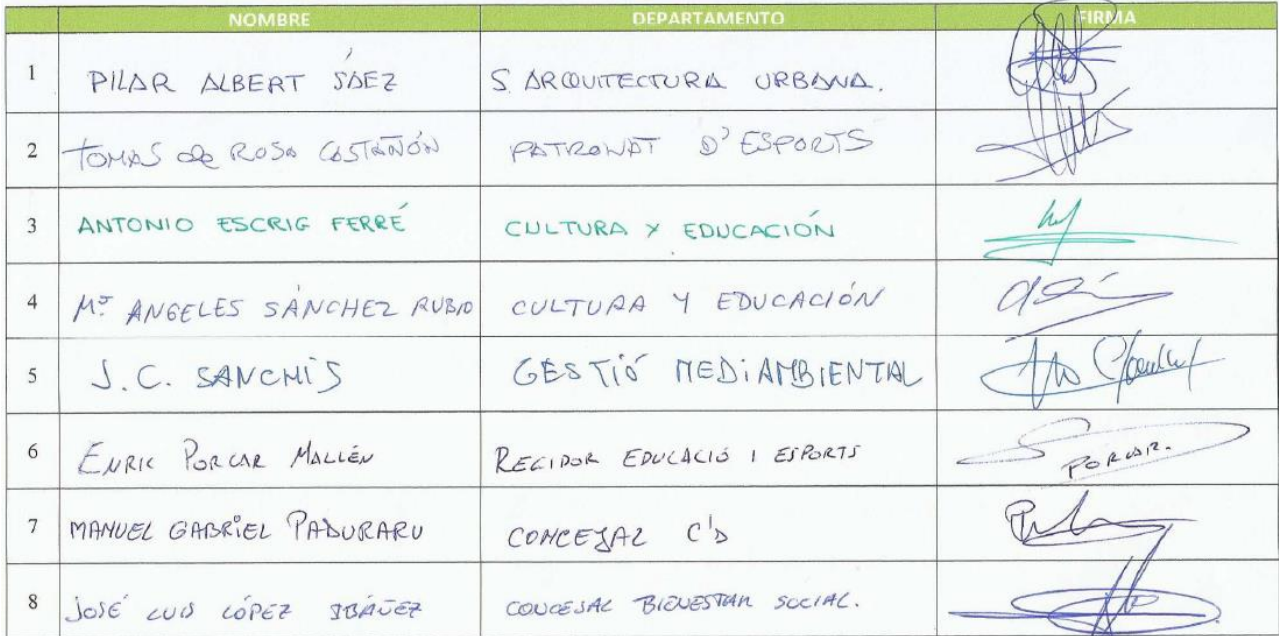 NOMBRE DEPARTAMENTO FIRMA
1 PILAR ALBERT SÁEZ S. ARQUITECTURA URBANA.
2 TOMAS de ROSA CASTAÑÓN PATRONAT D'ESPORTS
3 ANTONIO ESCRIG FERRÉ CULTURA Y EDUCACIÓN
4 Mª ANGELES SÁNCHEZ RUBIO CULTURA Y EDUCACIÓN
5 J.C. SANCHIS GESTIÓ MEDIAMBIENTAL
6 ENRIC PORCAR MALLÉN REGIDOR EDUCACIÓ I ESPORTS PORCAR.
7 MANUEL GABRIEL PADURARU CONCEJAL C's
8 JOSÉ LUIS LÓPEZ IBÁÑEZ CONCEJAL BIENESTAR SOCIAL.